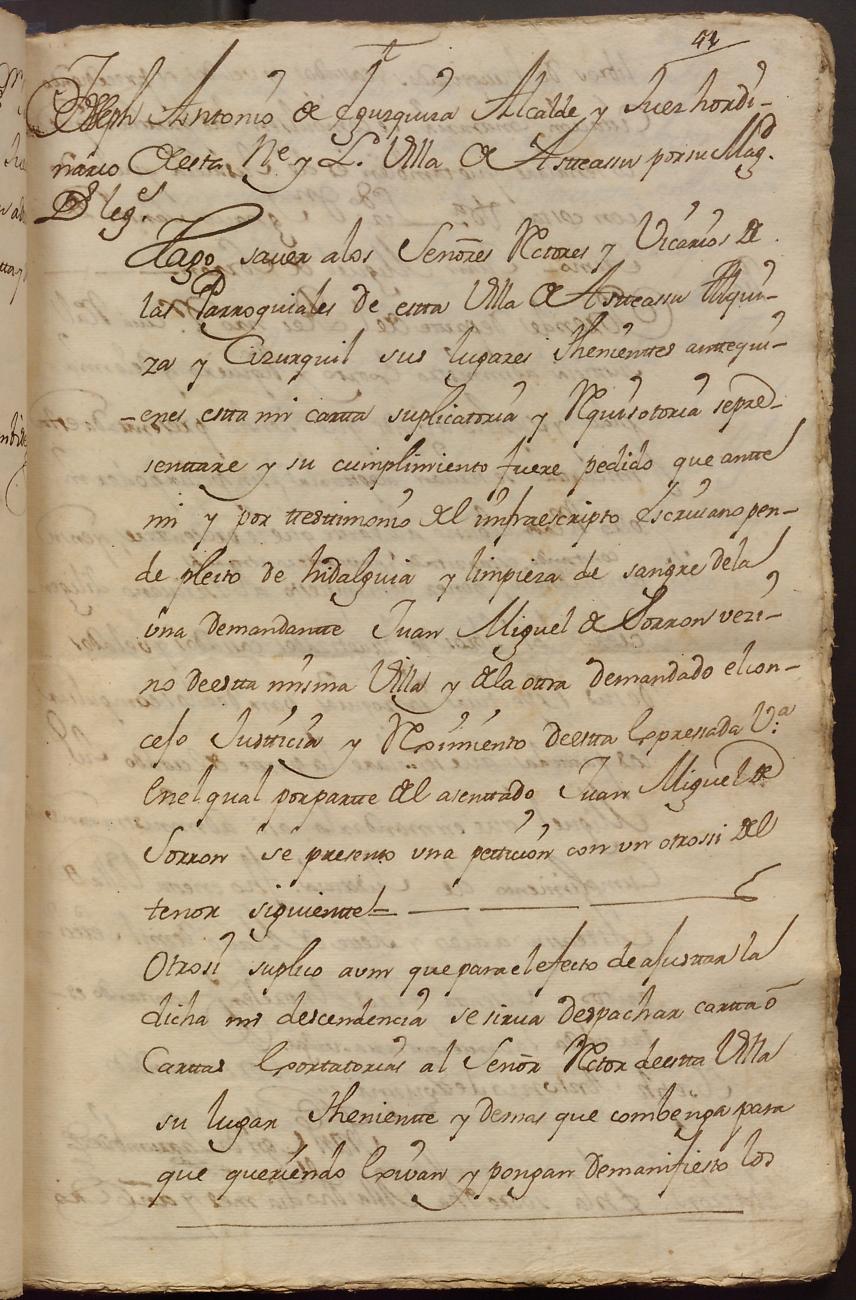 42
Joseph Antonio de Eguzquiza Alcalde y Juez hordi-
nario de esta N.e y L. Villa de Asteassu por su Mag.d
D.s leg.e
Hago saver a los Señores Rectores y Vicarios de
las Parroquiales de estta Villa de Asteassu Alqui-
za y Cizurquil sus lugares Thenientes antte qui-
enes estta mi cartta suplicatoria y Requisotoria se pre-
senttare y su cumplimiento fuere pedido que antte
mi y por ttesttimonio del imfraescripto Escrivano pen-
de pleito de hidalguia y limpieza de sangre de la
una demandantte Juan Miguel de Sorron vezi-
no de estta misma Villa y de la ottra demandado el con-
cejo Justticia y Reximiento de estta Expressada V.a
En el qual por partte del asenttado Juan Miguel de
Sorron se presento una pettición con un otrossi del
tenor siguientte
Otrosi suplico a vm que para el efecto de ajusttar la
dicha mi descendencia se sirva despachar cartta ô
Carttas Exortatorias al Señor Rector de estta Villa
su lugar Thenientte y demas que combenga para
que queriendo Exivan y pongan de manifiesto los